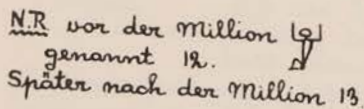 N.R vor der Million
genannt 12.
Später nach der Million 13